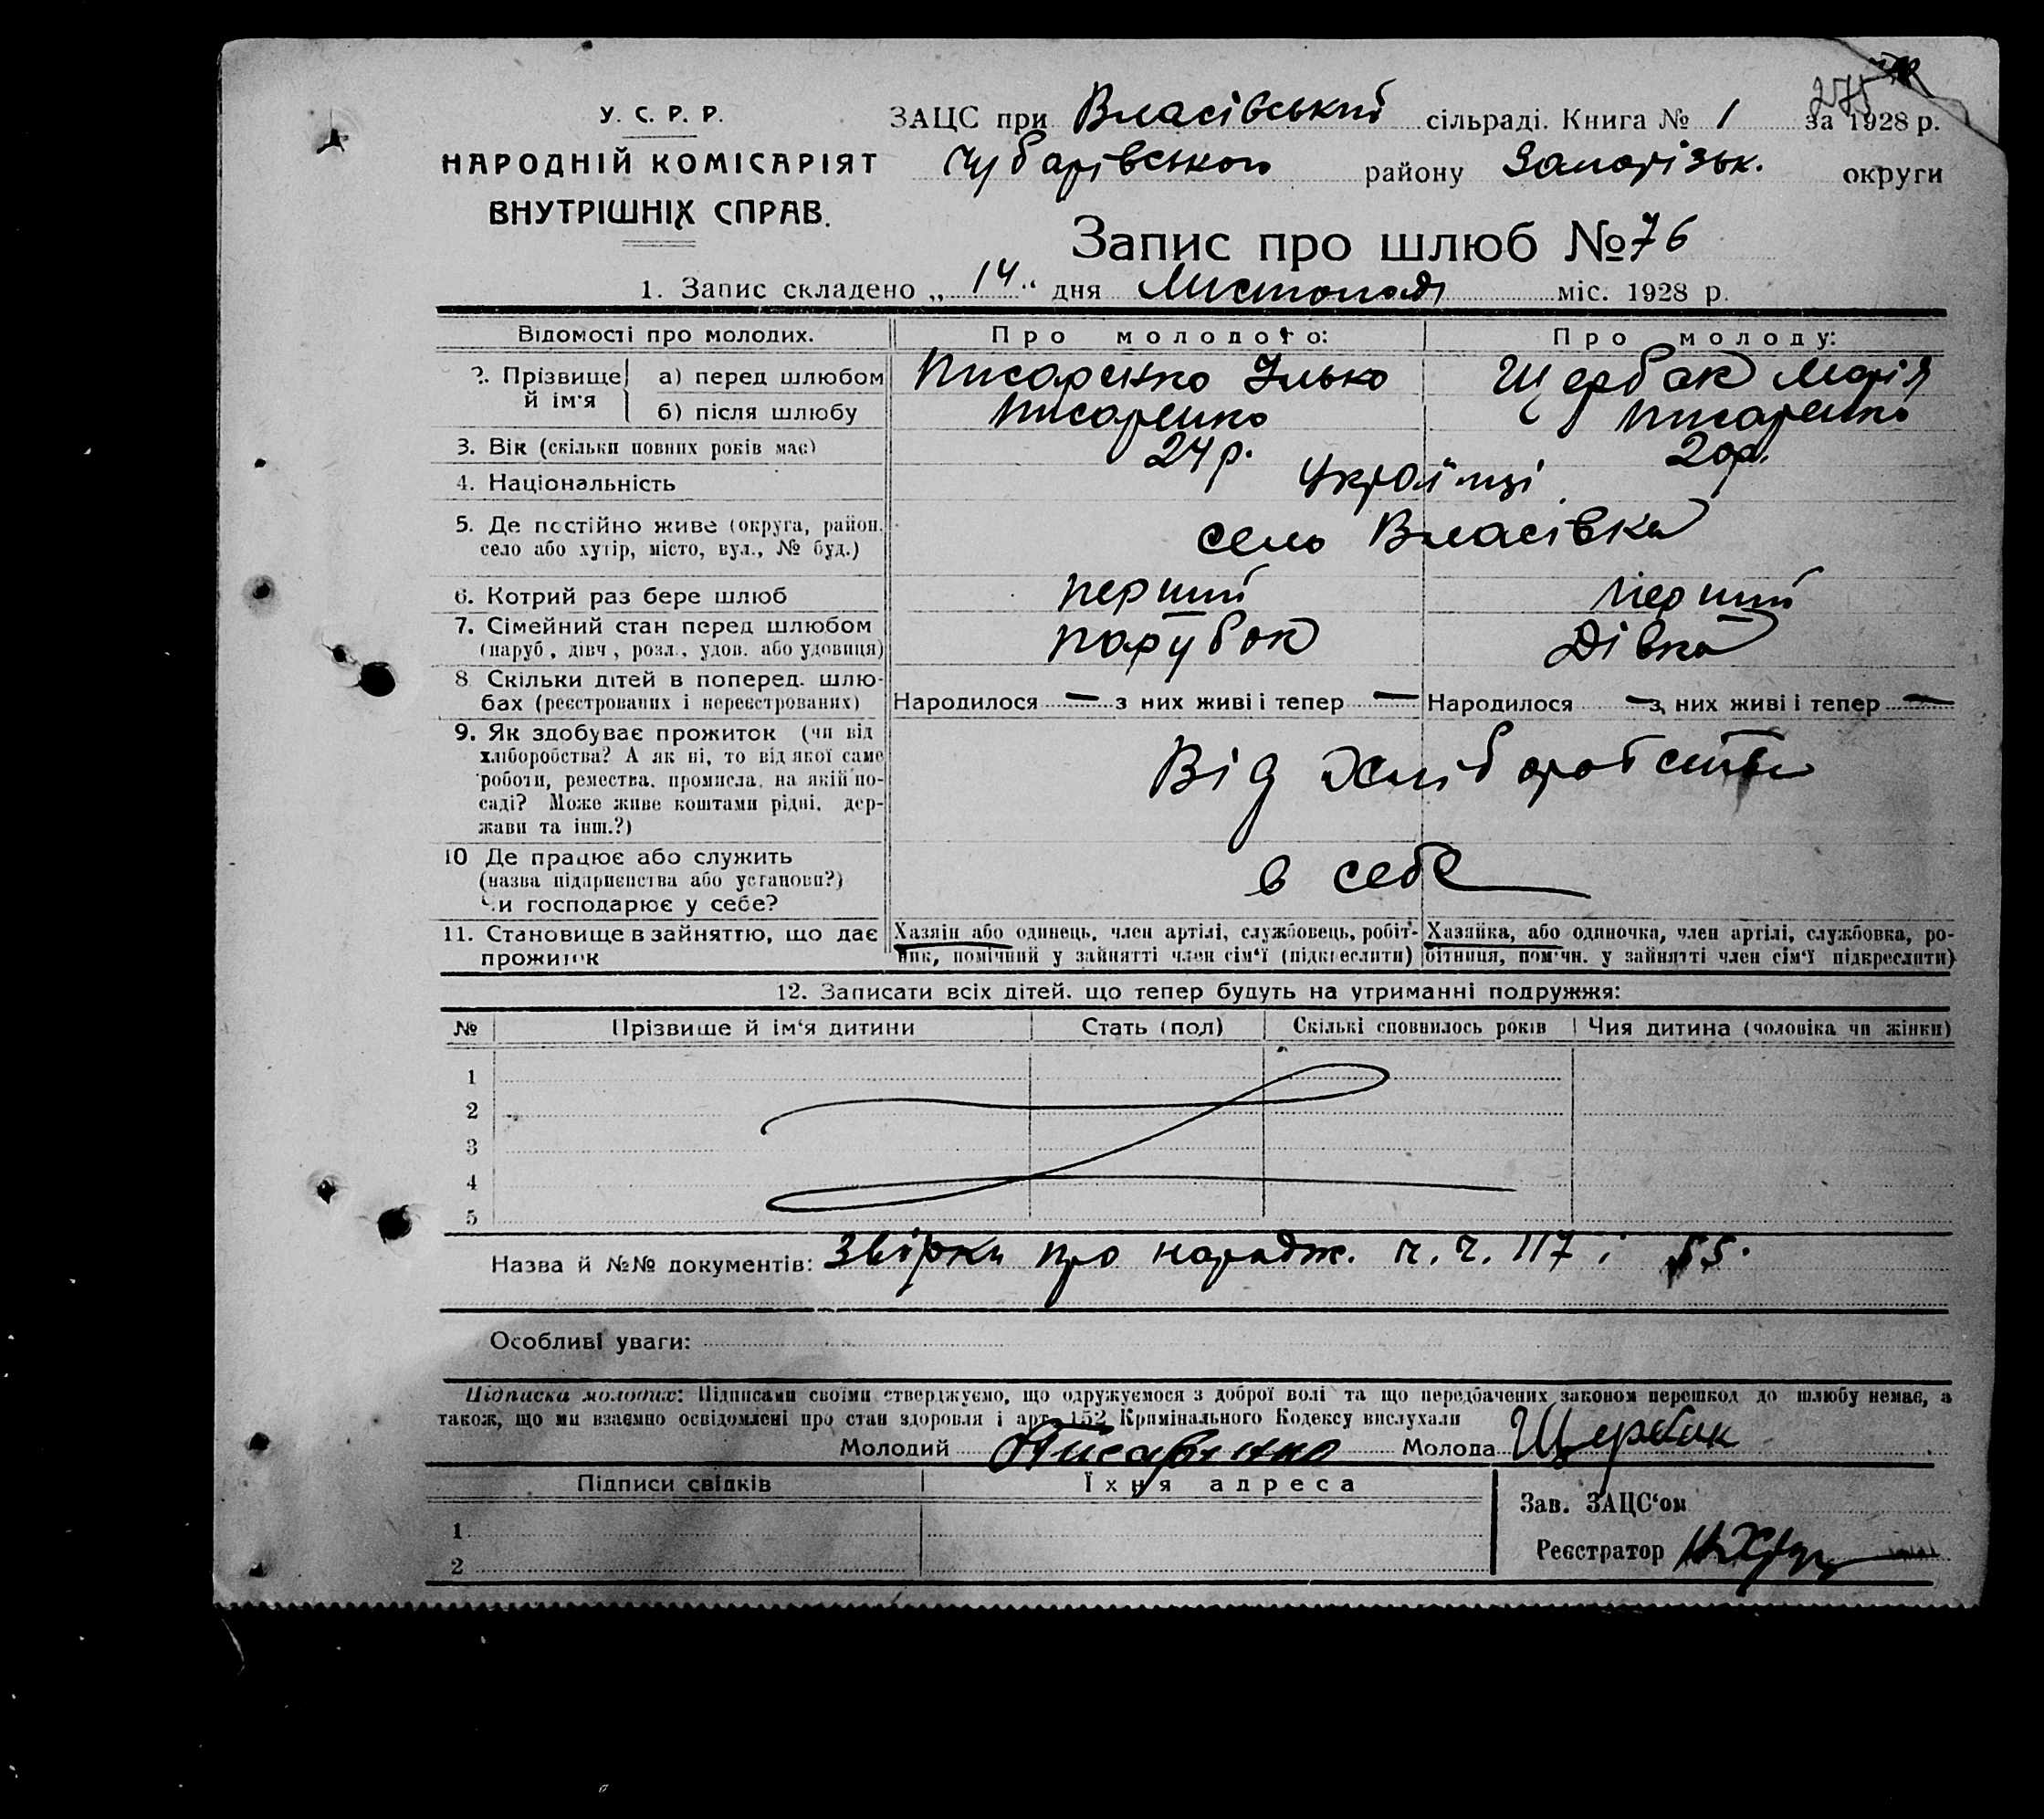 275
У. С. Р. Р.
НАРОДНІЙ КОМІСАРІЯТ
ВНУТРІШНІХ СПРАВ.
ЗАЦС при Власівській сільраді. Книга № 1 за 1928 р.
Чубарівського району Запорізьк. округи
Запис про шлюб № 76
1. Запис складено „ 14 “ дня Листопада міс. 1928 р.
Відомості про молодих. Про молодого: Про молоду:
2. Прізвище й ім'я а) перед шлюбом Писаренко Ілько Щербак Марія
б) після шлюбу Писаренко Писаренко
3. Вік (скільки повних років має) 24 р. 20 р.
4. Національність Українці
5. Де постійно живе (округа, район, село або хутір, місто, вул., № буд.) село Власівка
6. Котрий раз бере шлюб перший перший
7. Сімейний стан перед шлюбом (паруб., дівч., розл., удов. або удовиця) парубок Дівка
8 Скільки дітей в поперед. шлюбах (реєстрованих і нереєстрованих) Народилося — з них живі і тепер — Народилося — з них живі і тепер —
9. Як здобуває прожиток (чи від
хліборобства? А як ні, то від якої саме
роботи, ремества, промисла, на якій по-
саді? Може живе коштами рідні, дер-
жави та інш.?) Від хліборобства
10 Де працює або служить
(назва підприємства або установи?)
Чи господарює у себе? в себе
11. Становище в зайняттю, що дає прожиток
Хазяїн або одинець, член артілі, службовець, робіт-
ник, помічний у зайнятті член сім'ї (підкреслити)
Хазяйка, або одиночка, член артілі, службовка, ро-
бітниця, пом'чн. у зайнятті член сім'ї підкреслити)
12. Записати всіх дітей, що тепер будуть на утриманні подружжя:
№ Прізвище й ім'я дитини Стать (пол) Скількі сповнилось років Чия дитина (чоловіка чи жінки)
1
2
3
4
5
Назва й №№ документів: Звірки про народж. ч. ч. 117 і 55.
Особливі уваги:
Підписка молодих: Підписами своїми стверджуємо, що одружуємося з доброї волі та що передбачених законом перешкод до шлюбу немає, а
також, що ми взаємно освідомлені про стан здоровля і арт. 152 Кримінального Кодексу вислухали
Молодий Писаренко Молода Щербак
Підписи свідків Їхня адреса
1
2
Зав. ЗАЦС'ом
Реєстратор